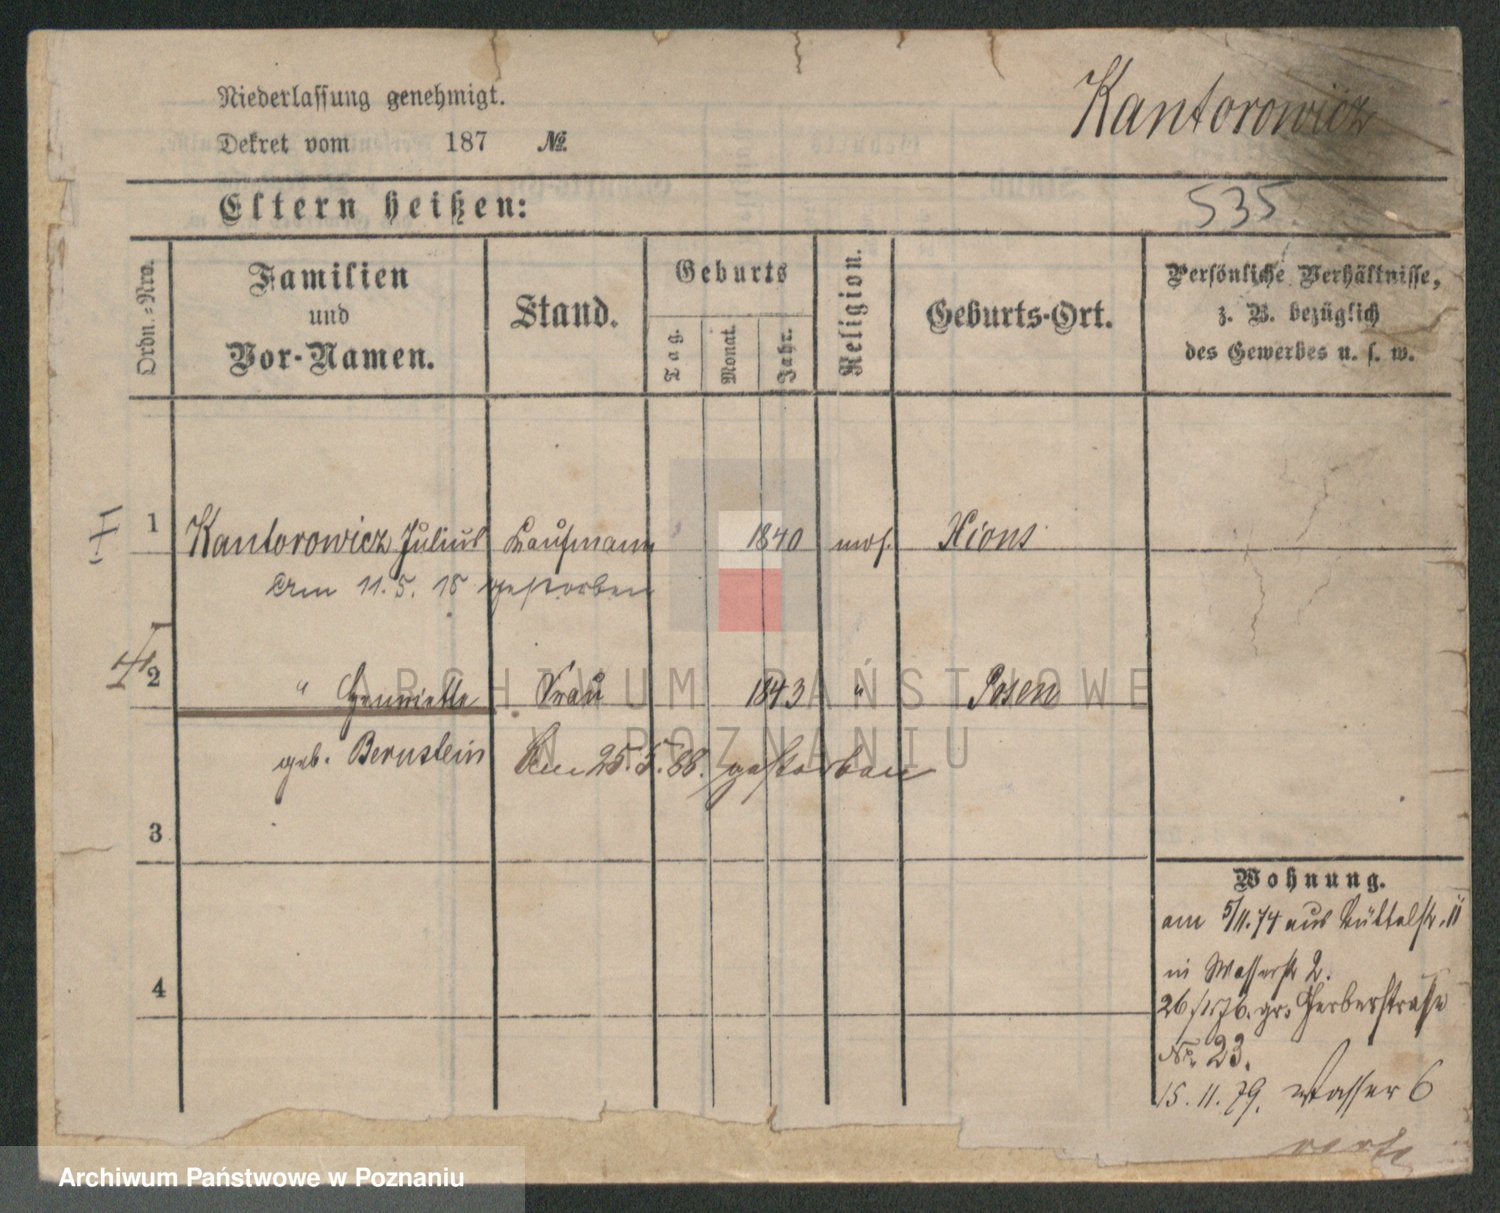 Niederlassung genehmigt.
Kantorowicz
Dekret vom 187 №
Eltern heißen:
535
Ordn.=Nro.
Familien
und
Vor-Namen.
Stand.
Geburts
Tag.
Monat.
Jahr.
Religion.
Geburts-Ort.
Persönliche Verhältnisse,
z. B. bezüglich
des Gewerbes u. s. w.
1 Kantorowicz Julius Kaufmann 1840 mos. Xions
Am 11. 5. 18 gestorben
2 " Henriette Frau 1843 " Posen
geb. Bernstein Am 25. 5. 88. gestorben
3
4
Wohnung.
am 5/11.74 aus Büttelstr. 11
in Wasserstr 2.
gr. Gerberstrasse
Nr. 23.
15. 11. 79. Wasser 6
ARCHIWUM PAŃSTWOWE
W POZNANIU
Archiwum Państwowe w Poznaniu